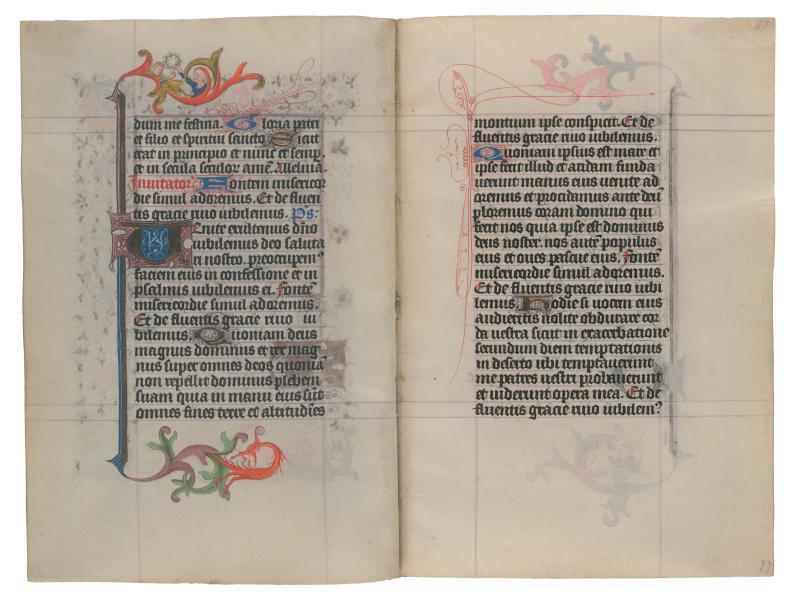 dum me festina. Gloria patri
et filio et spiritui sancto Sicut
erat in principio et nunc et semp.
et in secula seculor amē. Alleluia.
Inuitator. Fontem misericor
die simul adoremus. Et de fluen
tis gracie riuo iubilemus. Ps.
Venite exultemus dn̄o
iubilemus deo saluta
ri nostro. preocupem?
faciem eius in confessione et in
psalmis iubilemus ei. Fontē
misericordie simul adoremus.
Et de fluentis gracie riuo iu
bilemus. Quoniam deus
magnus dominus et rex mag
nus super omnes deos quoniā
non repellit dominus plebem
suam quia in manu eius sūt
omnes fines terre et altitudīes
montium ipse conspicit. Et de
fluentis gracie riuo iubilemus.
Quoniam ipsius est mare et
ipse fecit illud et aridam funda
uerunt manus eius uenite ad
oremus et procidamus ante deū
ploremus coram domino qui
fecit nos quia ipse est dominus
deus noster. nos autē populus
eius et oues pascue eius. Fontē
misericordie simul adoremus.
Et de fluentis gracie riuo iubi
lemus. Hodie si uocem eius
audieritis nolite obdurare cor
da uestra sicut in exacerbatione
secundum diem temptationis
in deserto ubi temptauerunt
me patres uestri probauerunt
et uiderunt opera mea. Et de
fluentis gracie riuo iubilem?